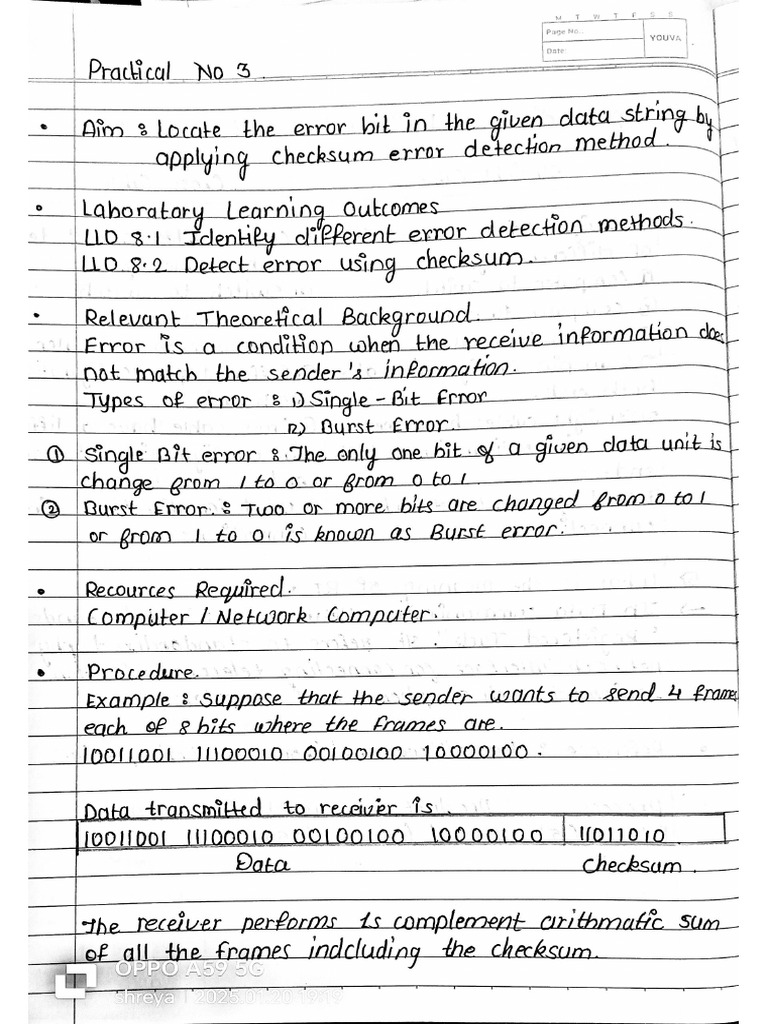 M T W T F S S
Page No.:
YOUVA
Date:
Practical No 3
• Aim : Locate the error bit in the given data string by
applying checksum error detection method.
• Laboratory Learning Outcomes
LLO 8.1 Identify different error detection methods.
LLO 8.2 Detect error using checksum.
• Relevant Theoretical Background.
Error is a condition when the receive information does
not match the sender's information.
Types of error : 1) Single-Bit Error
2) Burst Error.
① Single Bit error : The only one bit of a given data unit is
change from 1 to 0 or from 0 to 1.
② Burst Error : Two or more bits are changed from 0 to 1
or from 1 to 0 is known as Burst error.
• Recources Required.
Computer / Network Computer.
• Procedure.
Example : Suppose that the sender wants to send 4 frames
each of 8 bits where the frames are.
10011001 11100010 00100100 10000100.
Data transmitted to receiver is.
10011001 11100010 00100100 10000100 11011010
Data checksum.
The receiver performs 1s complement arithmatic sum
of all the frames indcluding the checksum.
OPPO A59 5G
shreya | 2025.01.20 19:19